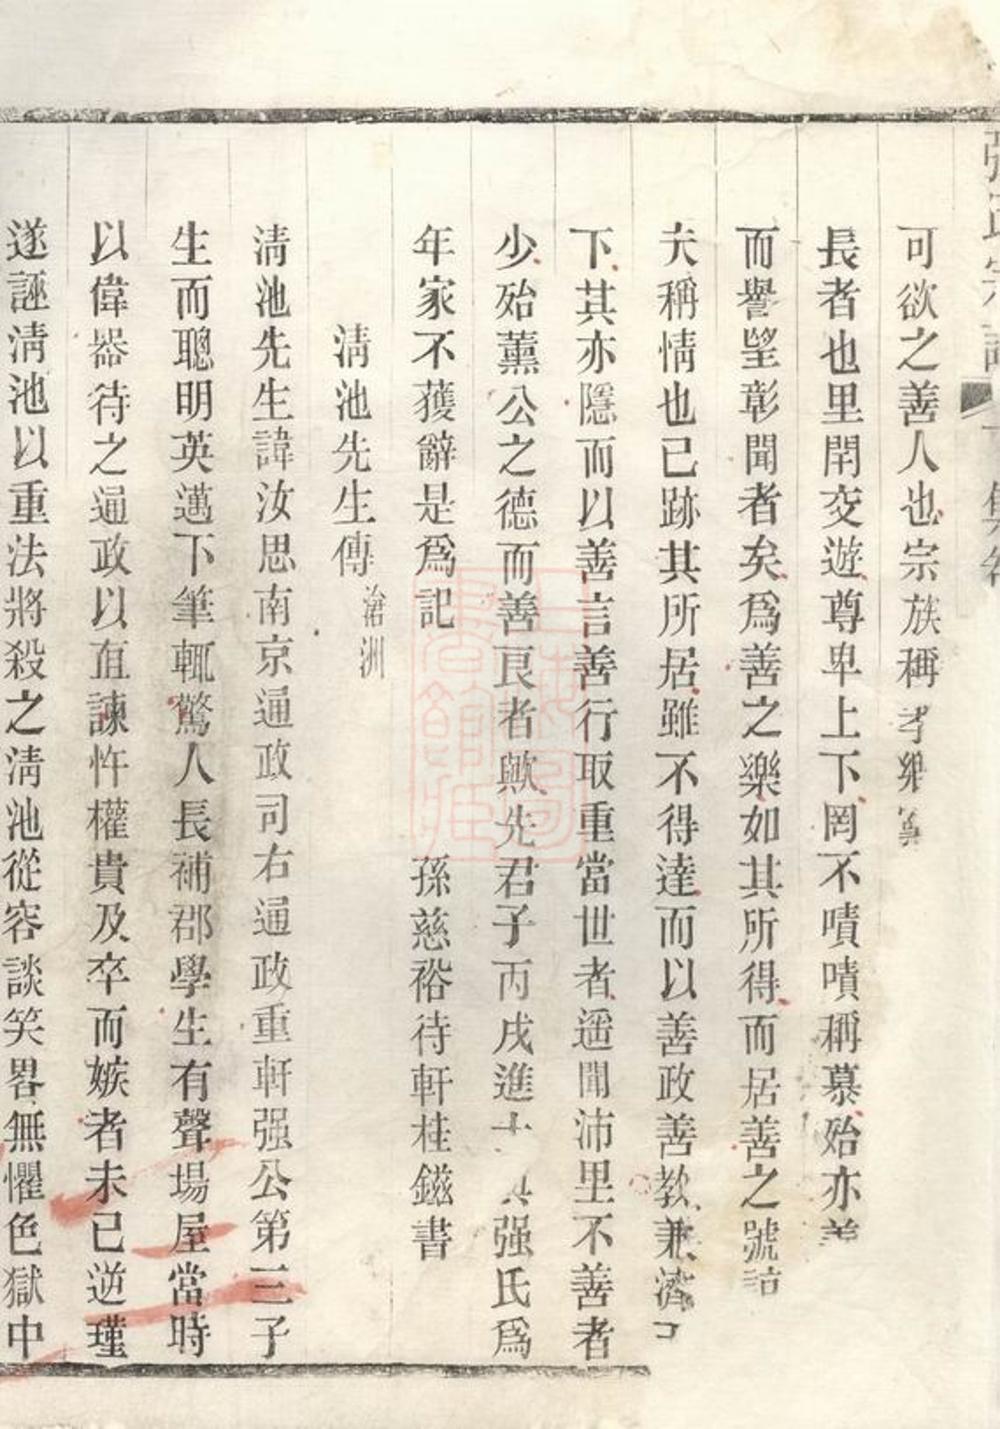 可欲之善人也宗族稱
長者也里閈交遊尊卑上下罔不嘖嘖稱慕殆亦善
而譽望彰聞者矣爲善之樂如其所得而居善之號
夫稱情也已跡其所居雖不得達而以善政善教兼濟
下其亦隱而以善言善行取重當世者遥聞沛里不善者
少殆薰公之德而善良者歟先君子丙戌進士 强氏爲
年家不獲辭是爲記 孫慈裕待軒桂鎡書
淸池先生傳 滄洲
淸池先生諱汝思南京通政司右通政重軒强公第三子
生而聰明英邁下筆輒驚人長補郡學生有聲場屋當時
以偉器待之逼政以直諫忤權貴及卒而嫉者未已逆瑾
遂誣淸池以重法將殺之淸池從容談笑畧無懼色獄中